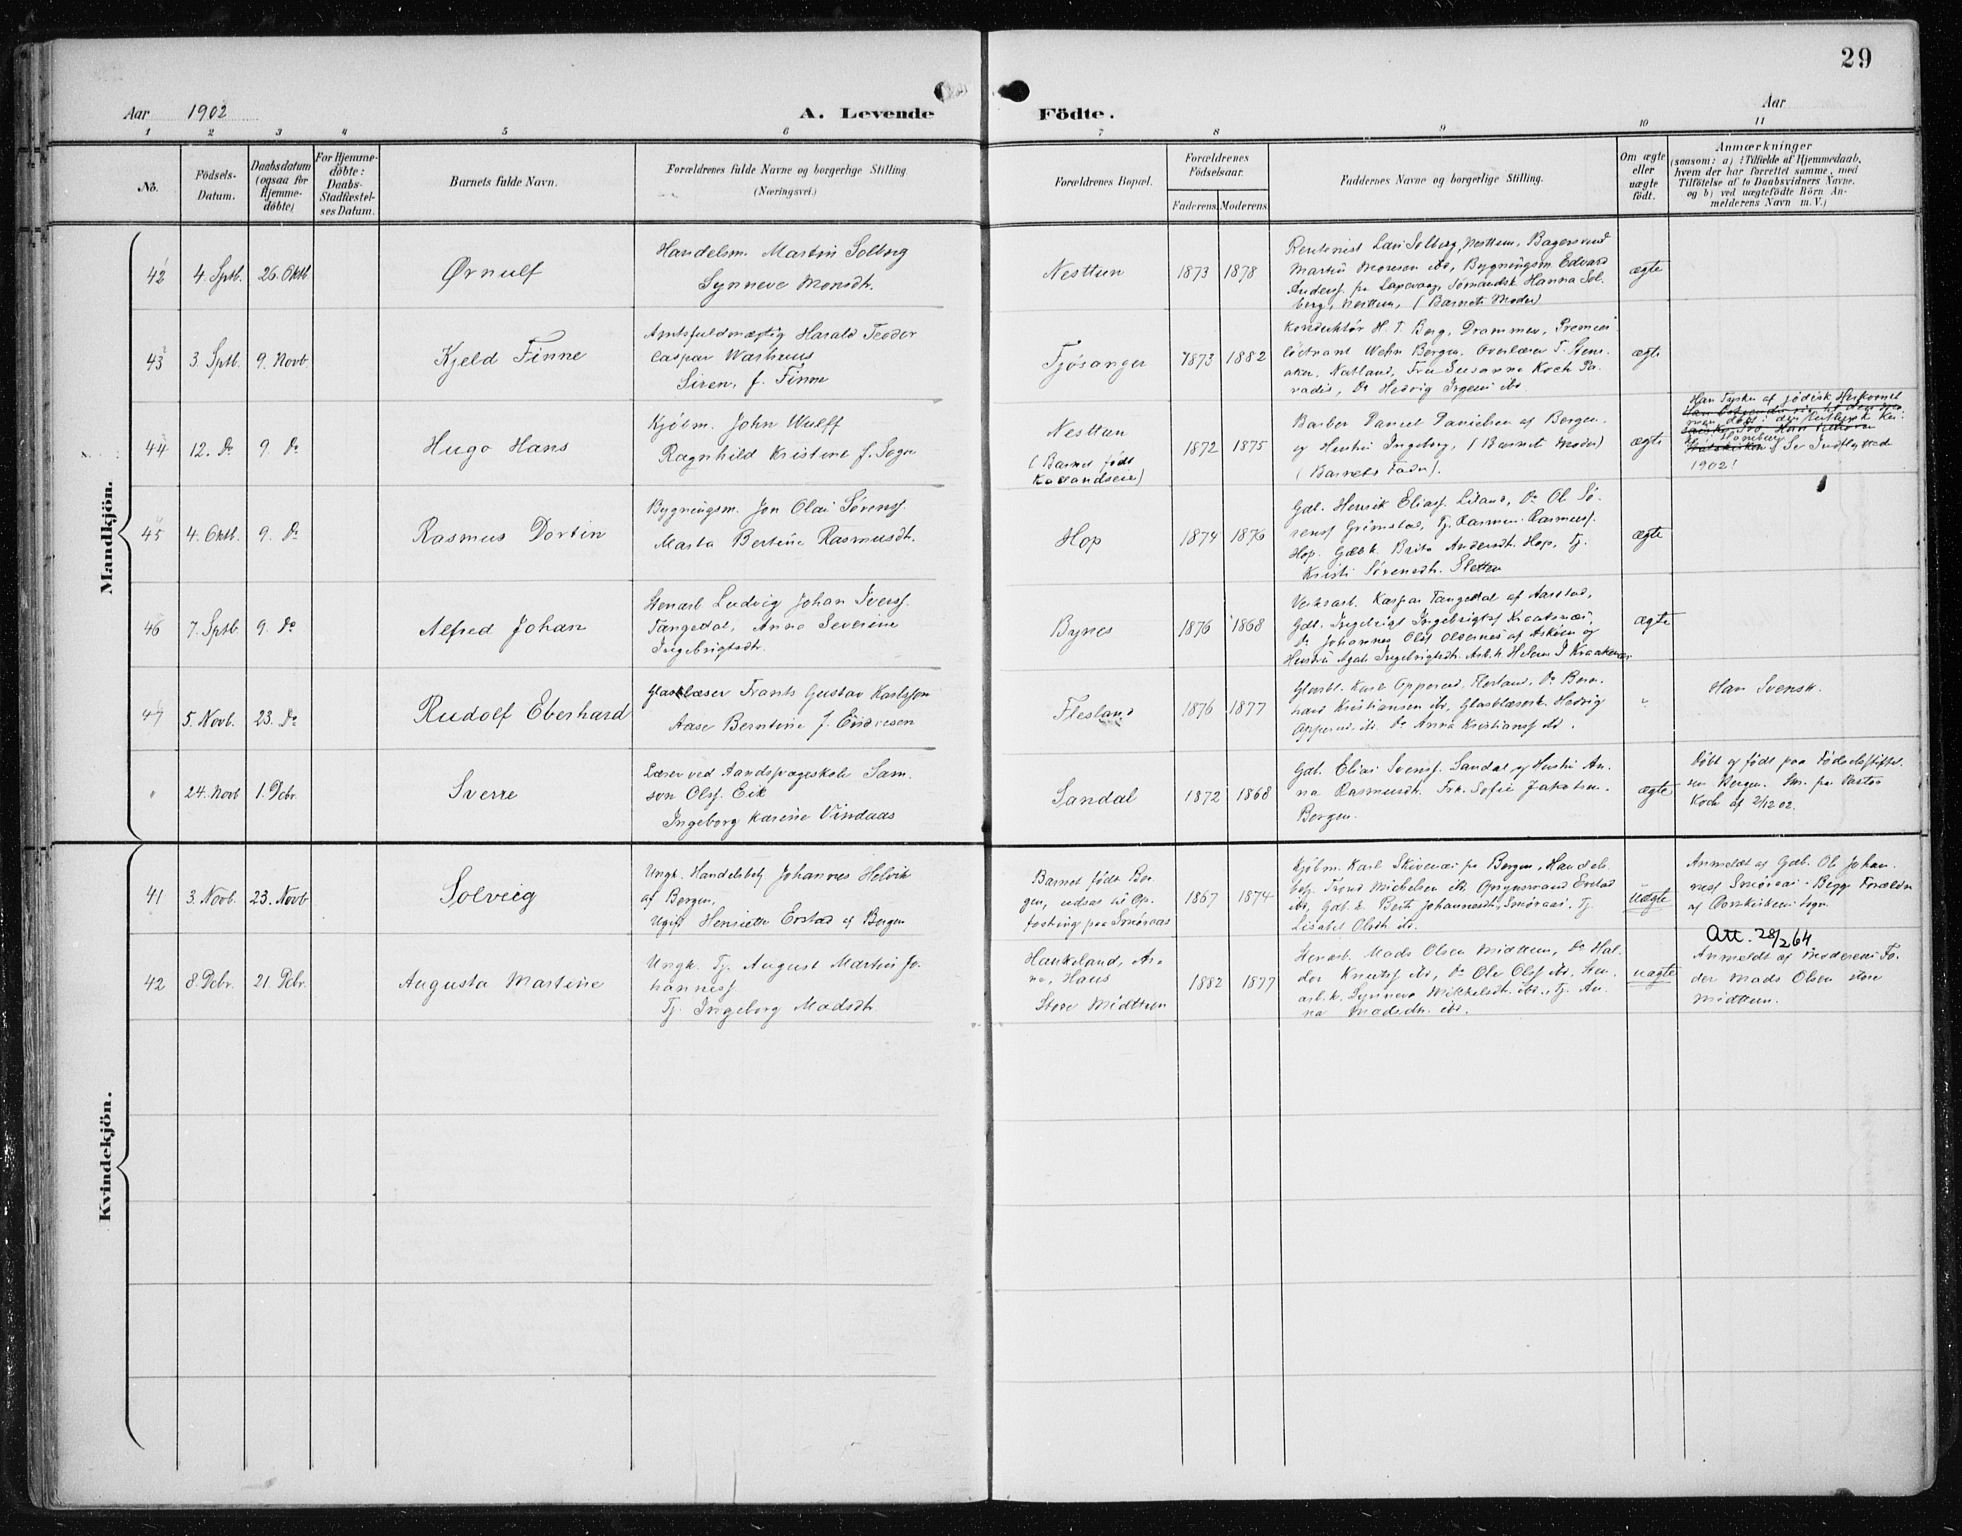 29
Aar 1902
A. Levende Födte.
Aar
1 2 3 4 5 6 7 8 9 10 11
No.
Födsels-
Datum.
Daabsdatum
(ogsaa for
Hjemme-
døbte)
For Hjemme-
døbte:
Daabs-
Stadfæstel-
ses Datum.
Barnets fulde Navn.
Forældrenes fulde Navne og borgerlige Stilling.
(Næringsvei.)
Forældrenes Bopæl.
Forældrenes
Födselsaar.
Faderens. Moderens.
Faddernes Navne og borgerlige Stilling.
Om ægte
eller
uægte
født.
Anmærkninger
(saasom: a) i Tilfælde af Hjemmedaab,
hvem der har forrettet samme, med
Tilføielse af to Daabsvidners Navne,
og b) ved uægtefödte Börn An-
melderens Navn m. V.)
Mandkjön.
42
4. Sptb.
26. Oktb
Ørnulf
Handelsm. Martin Solberg
Synneve Monsdt.
Nesttun
1873
1878
Solberg, Nesttun, Bagersvend
Bygningsm. Edvard
Hanna Sol-
berg, Nesttun, (Barnets Moder)
ægte
43
3. Sptb.
9. Novb.
Kjeld Finne
Amtsfuldmægtig Harald Teodor
Caspar Warhuus
Siren, f. Finne
Fjøsanger
1873
1882
Konduktør H. T. Borg, Drammen, Premier
Wehn Bergen. Overlærer T. Stens-
aker, Natland, Fru Susanna Koch Pa-
radis, Do Hedvig
ægte
44
12. Do
9. Do
Hugo Hans
Kjøbm. John Wulff
Ragnhild Kristine f.
Nesttun
(Barnet født
Kallandseie)
1872
1875
Barber Daniel Danielsen af Bergen.
og Hustru Ingeborg, (Barnet Moder)
(Barnets Fader).
ægte
Han Tysker af jödisk Herkomst
1902!
45
4. Oktb.
9. Do
Rasmus Dortin
Bygningsm. Jon Olai Sörenss.
Marta Bertine Rasmusdt.
Hop
1874
1876
Gdb. Henrik Eliass. Liland, Do Ol. Sö-
renss Grimstad, Tj. Rasmus Rasmuss.
Hop. Gdbk. Brita Andersdt. Hop, Tj.
Kristi Sörensdt. Sletten
ægte
46
7. Sptb.
9. Do
Alfred Johan
Stenarb. Ludvig Johan Iverss.
Tangedal, Anna Severine
Ingebrigtsdt.
Bynes
1876
1868
Verksarb. Kaspar Tangedal af Aarstad,
Gdb. Ingebrigt Ingebrigts. Kraakenæs,
Do Johannes Ols. af Asköen og
Hustru Agate Ingebrigtsdt. Arb.k. Helene J. Kraakenæs
ægte
47
5. Novb.
23. Do
Rudolf Eberhard
Glasblæser Frants Gustav Karlsson
Aase Berntine f. Endresen
Flesland
1876
1877
Glasbl. Karl Opperud, Flesland, Do Bern-
hard Kristiansen ibd., Glasblæserk. Hedvig
Opperud, ibd. Do Anna Kristianss. ibd.
"
Han Svensk.
"
24. Novb
1. Debr.
Sverre
Lærer ved Aandssvageskole Sam-
son Olss. Eik
Ingeborg Karine Vindaas
Sandal
1872
1868
Gdb. Elias Svenss. Sandal og Hustru An-
na Rasmusdt. Frk. Sofie Jakobsen.
Bergen.
ægte
Döbt og født paa Födselsstiftel-
sen Bergen. Sml. fra Pastor
Koch af 2/12 02.
Kvindekjön.
41
3. Novb.
23. Novb
Solveig
Ungk. Handelsbetj. Johannes Helvik
af Bergen.
Ugift Henriette Erstad af Bergen
Barnet født Ber-
gen, udsat til Op-
fostring paa Smöraas
1867
1874
Kjöbm. Karl Skivenes fra Bergen, Handels-
betj. Trond Michelsen ibd. Erstad
ibd, Gdb.k. Berte Johannesdt. Smöraas, Tj.
Lisabet Olsdt. ibd.
Uægte
Anmeldt af Gdb. Ole Johan-
ness Smöraas. Begge Forældre
af Domkirkens Sogn.
Att. 28/2 64
42
8. Debr.
21. Debr.
Augusta Martine
Ungk. Tj. August Martin Jo-
hanness
Tj. Ingeborg Madsdt.
Haukeland, Ar-
na, Haus
Store Midttun
1882
1877
Stenarb. Mads Olsen Midttun, Do Hal-
dor Knuts. ibd, Do Ole Ols. ibd. Sten-
arb.k. Synneva Mikkelsdt. ibd., Tj. An-
na Madsdt. ibd.
uægte
Anmeldt af Moderens Fa-
der Mads Olsen store
Midttun.